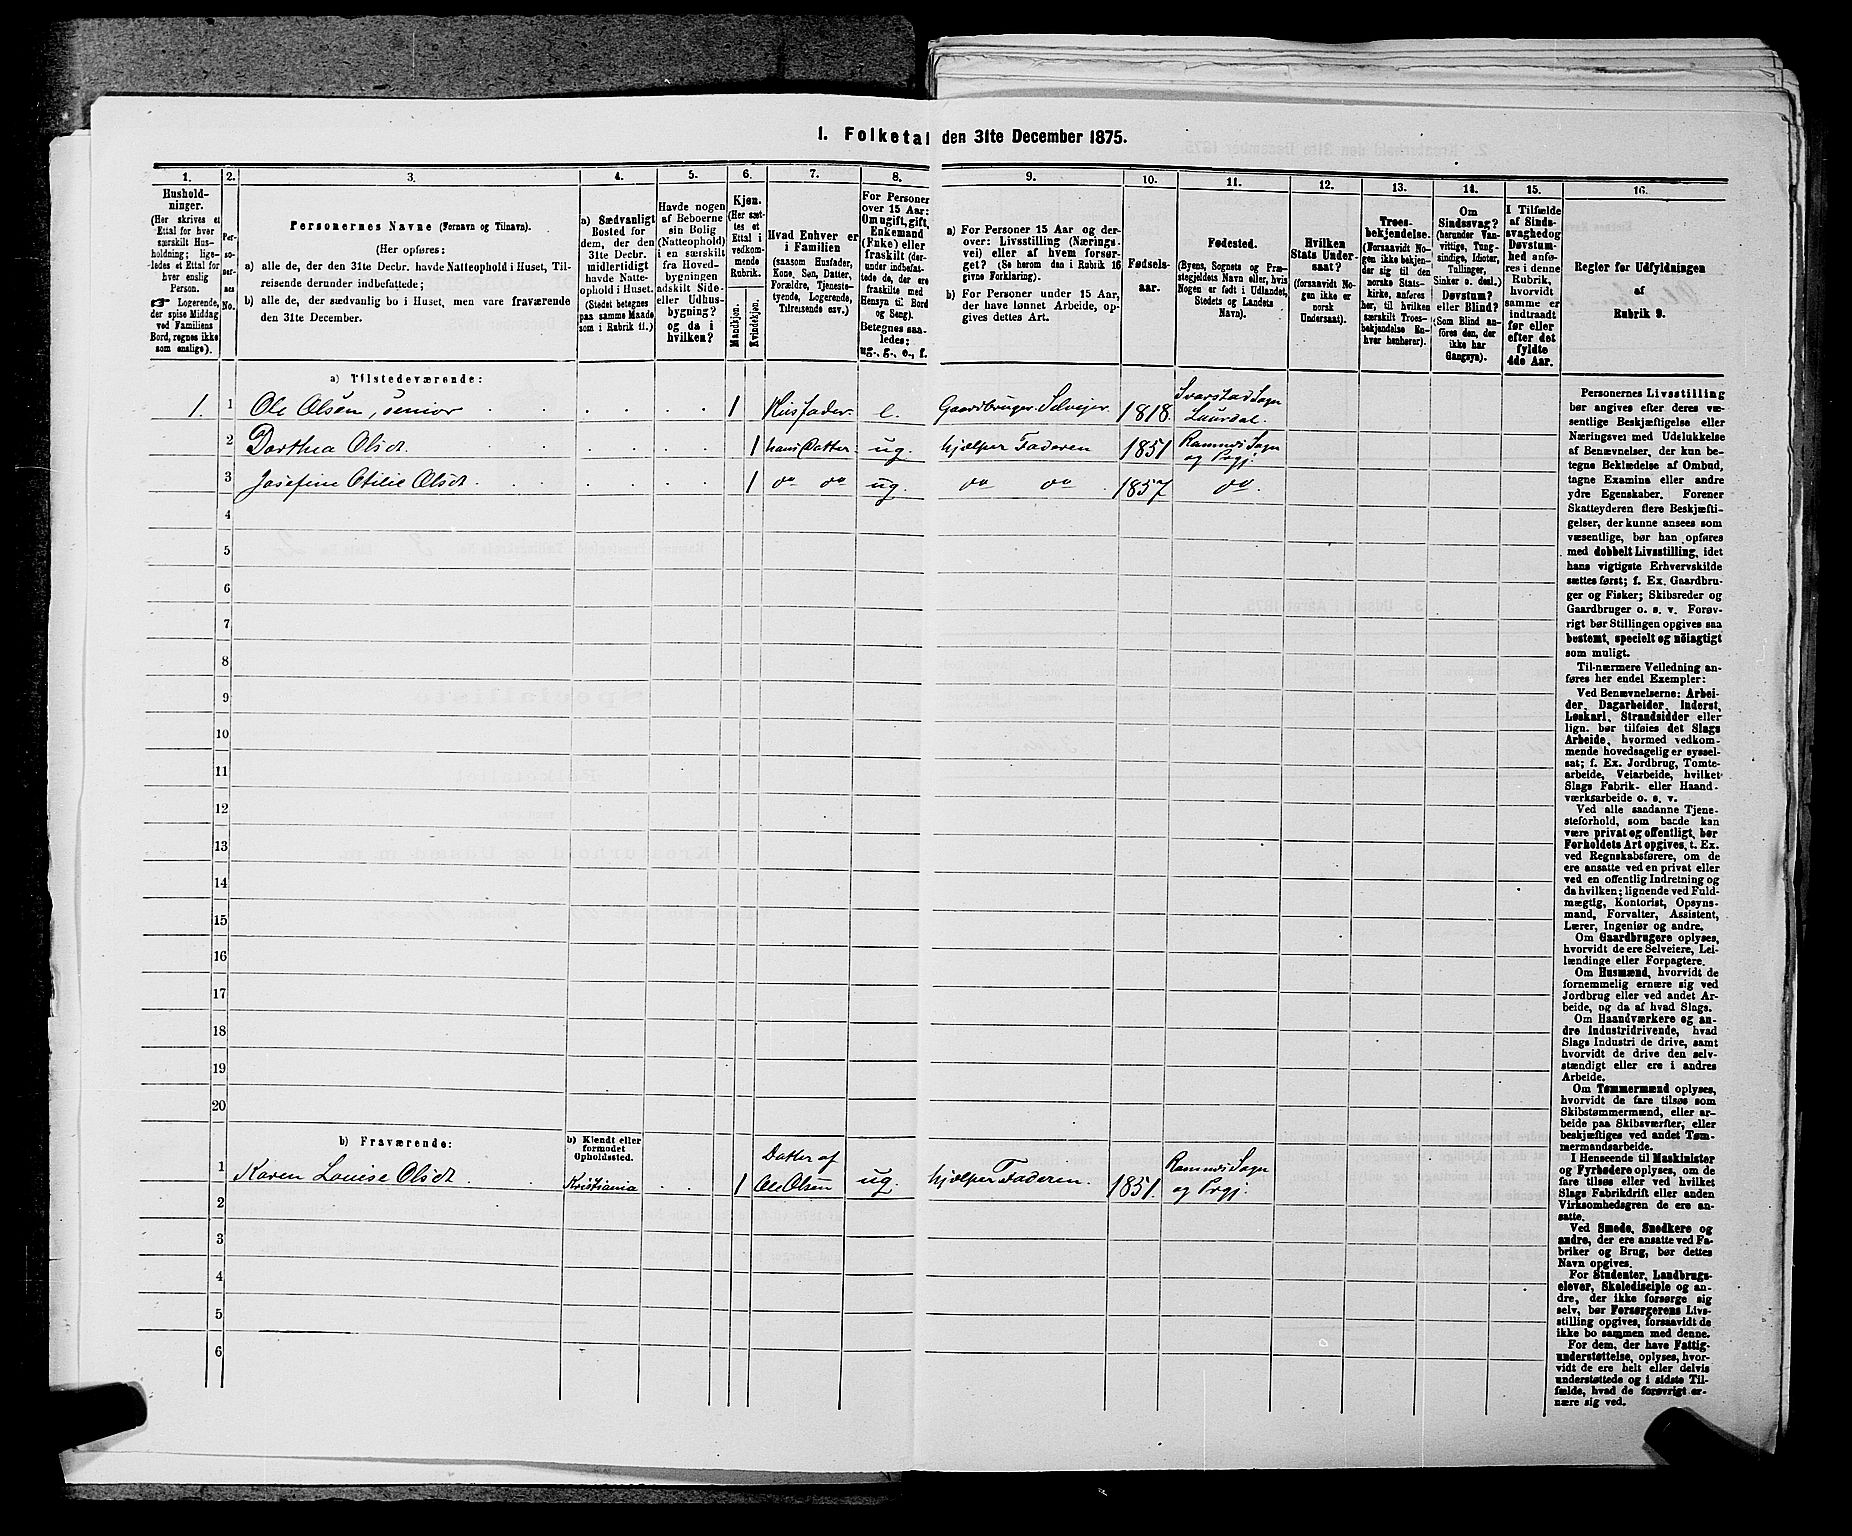 1. Folketal den 31te December 1875.
1. 2. 3. 4. 5. 6. 7. 8. 9. 10. 11. 12. 13. 14. 15. 16.
Hushold-
ninger.
(Her skrives et
Ettal for hver
særskilt Hus-
holdning; lige-
ledes et Ettal for
hver enslig
Person.
☞ Logerende,
der spise Middag
ved Familiens
Bord, regnes ikke
som enslige).
Per-
so-
ner-
nes
No.
Personernes Navne (Fornavn og Tilnavn).
(Her opføres:
a) alle de, der den 31te Decbr. havde Natteophold i Huset, Til-
reisende derunder indbefattede;
b) alle de, der sædvanlig bo i Huset, men vare fraværende
den 31te December.
a) Sædvanligt
Bosted for
dem, der den
31te Decbr.
midlertidigt
havde Natte-
ophold i Huset.
(Stedet betegnes
paa samme Maade
som i Rubrik 11.)
Havde nogen
af Beboerne
sin Bolig
(Natteophold)
i en særskilt
fra Hoved-
bygningen
adskilt Side-
eller Udhus-
bygning?
og da i
hvilken?
Kjøn.
(Her sæt-
tes et
Ettal i
vedkom-
mende
Rubrik.
Mandkjøn.
Kvindekjøn.
Hvad Enhver er
i Familien
(saasom Husfader,
Kone, Søn, Datter,
Forældre, Tjeneste-
tyende, Logerende,
Tilreisende osv.)
For Personer
over 15 Aar:
Om ugift, gift,
Enkemand
(Enke) eller
fraskilt (der-
under indbefat-
tede de, der ere
fraskilte med
Hensyn til Bord
og Seng).
Betegnes saa-
ledes:
ug., g., e., f.
a) For Personer 15 Aar og der-
over: Livsstilling (Nærings-
vei) eller af hvem forsør-
get? (Se herom den i Rubrik 16
givne Forklaring).
b) For Personer under 15 Aar,
der have lønnet Arbeide, op-
gives dettes Art.
Fødsels-
aar.
Fødested.
(Byens, Sognets og Præ-
stegjeldets Navn eller, hvis
Nogen er født i Udlandet,
Stedets og Landets
Navn).
Hvilken
Stats Under-
saat?
(forsaavidt No-
gen ikke er
norsk
Undersaat).
Troes-
bekjendelse.
(Forsaavidt No-
gen ikke bekjen-
der sig til den
norske Stats-
kirke, anføres
her, til hvilken
særskilt Troes-
bekjendelse En-
hver henhører).
Om
Sindssvag?
(herunder Van-
vittige, Tung-
sindige, Idioter,
Tullinger,
Sinker o. desl.)
Døvstum?
eller Blind?
(Som Blind an-
føres den, der
ikke har
Gangsyn).
I Tilfælde
af Sinds-
svaghed og
Døvstum-
hed anfø-
res i denne
Rubrik,
hvorvidt
samme er
indtraadt
før eller
efter det
fyldte
4de Aar.
Regler for Udfyldningen
af
Rubrik 9.
a) Tilstedeværende:
1. 1 Ole Olsen, senior 1 Husfader e. Gaardbruger Selveier 1818 Svarstad Sogn
Laurdal.
2 Dorthea Olsdt. 1 hans Datter ug. hjelper Faderen 1851 Ramnæs Sogn
og Prgj.
3 Josefine Otilie Olsdt. 1 do do ug. do do 1857 do.
4
5
6
7
8
9
10
11
12
13
14
15
16
17
18
19
20
b) Fraværende:
b) Kjendt eller
formodet
Opholdssted.
1 Karen Louise Olsdt. Kristiania 1 Datter af
Ole Olsen ug. hjelper Faderen. 1851. Ramnæs Sogn
og Prgj.
2
3
4
5
6
Personernes Livsstilling
bør angives efter deres væ-
sentlige Beskjæftigelse eller
Næringsvei med Udelukkelse
af Benævnelser, der kun be-
tegne Beklædelse af Ombud,
tagne Examina eller andre
ydre Egenskaber. Forener
Skatteyderen flere Beskjæfti-
gelser, der kunne ansees som
væsentlige, bør han opføres
med dobbelt Livsstilling, idet
hans vigtigste Erhvervskilde
sættes først; f. Ex. Gaardbru-
ger og Fisker; Skibsreder og
Gaardbruger o. s. v. Forøv-
rigt bør Stillingen opgives saa
bestemt, specielt og nøiagtigt
som muligt.
Til nærmere Veiledning an-
føres her endel Exempler:
Ved Benævnelserne: Arbei-
der, Dagarbeider, Inderst,
Løskarl, Strandsidder eller
lign. bør tilføies det Slags
Arbeide, hvormed vedkom-
mende hovedsagelig er syssel-
sat; f. Ex. Jordbrug, Tomte-
arbeide, Veiarbeide, hvilket
Slags Fabrik- eller Haand-
værksarbeide o. s. v.
Ved alle saadanne Tjene-
steforhold, som baade kan
være privat og offentligt, bør
Forholdets Art opgives, t. Ex.
ved Regnskabsførere, om de
ere ansatte ved en privat eller
ved en offentlig Indretning og
da hvilken; lignende ved Fuld-
mægtig, Kontorist, Opsyns-
mand, Forvalter, Assistent,
Lærer, Ingeniør og andre.
Om Gaardbrugere oplyses,
hvorvidt de ere Selveiere, Lei-
lændinge eller Forpagtere.
Om Husmænd, hvorvidt de
fornemmelig ernære sig ved
Jordbrug eller ved andet Ar-
beide, og da af hvad Slags.
Om Haandværkere og an-
dre Industridrivende, hvad
Slags Industri de drive, samt
hvorvidt de drive den selv-
stændigt eller ere i andres
Arbeide.
Om Tømmermænd oplyses,
hvorvidt de fare tilsøs som
Skibstømmermænd, eller ar-
beide paa Skibsværfter, eller
beskjæftiges ved andet Tøm-
mermandsarbeide.
I Henseende til Maskinister
og Fyrbødere oplyses, om de
fare tilsøs eller ved hvilket
Slags Fabrikdrift eller anden
Virksomhedsgren de ere an-
satte.
Ved Smede, Snedkere og
andre, der ere ansatte ved Fa-
briker og Brug, bør dettes
Navn opgives.
For Studenter, Landbrugs-
elever, Skoledisciple og an-
dre, der ikke forsørge sig
selv, bør Forsørgerens Livs-
stilling opgives, forsaavidt de
ikke bo sammen med denne.
For dem, der have Fattig-
understøttelse, oplyses, hvor-
vidt de ere helt eller delvis
understøttede og i sidste Til-
fælde, hvad de forøvrigt er-
nære sig ved.